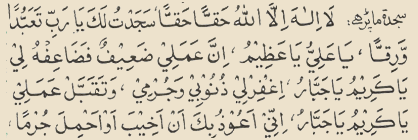 سجدہ ما پڑھے: لَا اِلٰهَ اِلَّا اللهُ حَقًّا حَقًّا سَجَدْتُ لَكَ يَا رَبِّ تَعَبُّدًا
وَّرِقًّا، يَا عَلِيُّ يَا عَظِيْمُ، اِنَّ عَمَلِيْ ضَعِيْفٌ فَضَاعِفْهُ لِيْ
يَا كَرِيْمُ يَا جَبَّارُ، اِغْفِرْ لِيْ ذُنُوْبِيْ وَجُرْمِيْ، وَتَقَبَّلْ عَمَلِيْ
يَا كَرِيْمُ يَا جَبَّارُ، اِنِّيْ اَعُوْذُ بِكَ اَنْ اَخِيْبَ اَوْ اَحْمِلَ جُرْمًا،